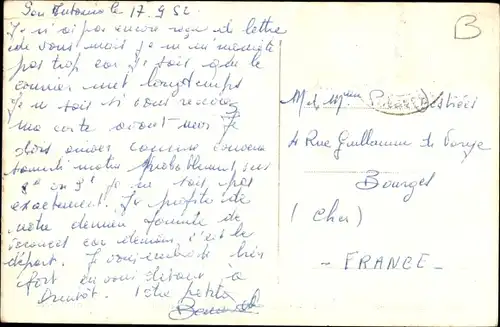 San Antonio le 17.9.52
Je n'ai pas encore reçu de lettre
de vous mais je ne m'inquiète
pas trop car je sais que le
courrier met longtemps
Je ne sais si vous recevrez
ma carte avant moi. Je
dois arriver comme convenu
samedi matin probablement vers
8h ou 9h je ne sais pas
exactement. Je profite de
notre dernière journée de
vacances car demain c'est le
départ. Je vous embrasse très
fort en vous disant à
bientôt. Votre petite
B
M et Mme
4 Rue Guillaume de
Bourges
(Cher)
- FRANCE -